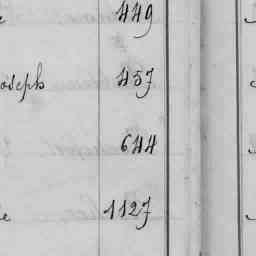 449
oseph 457
644
e 1127